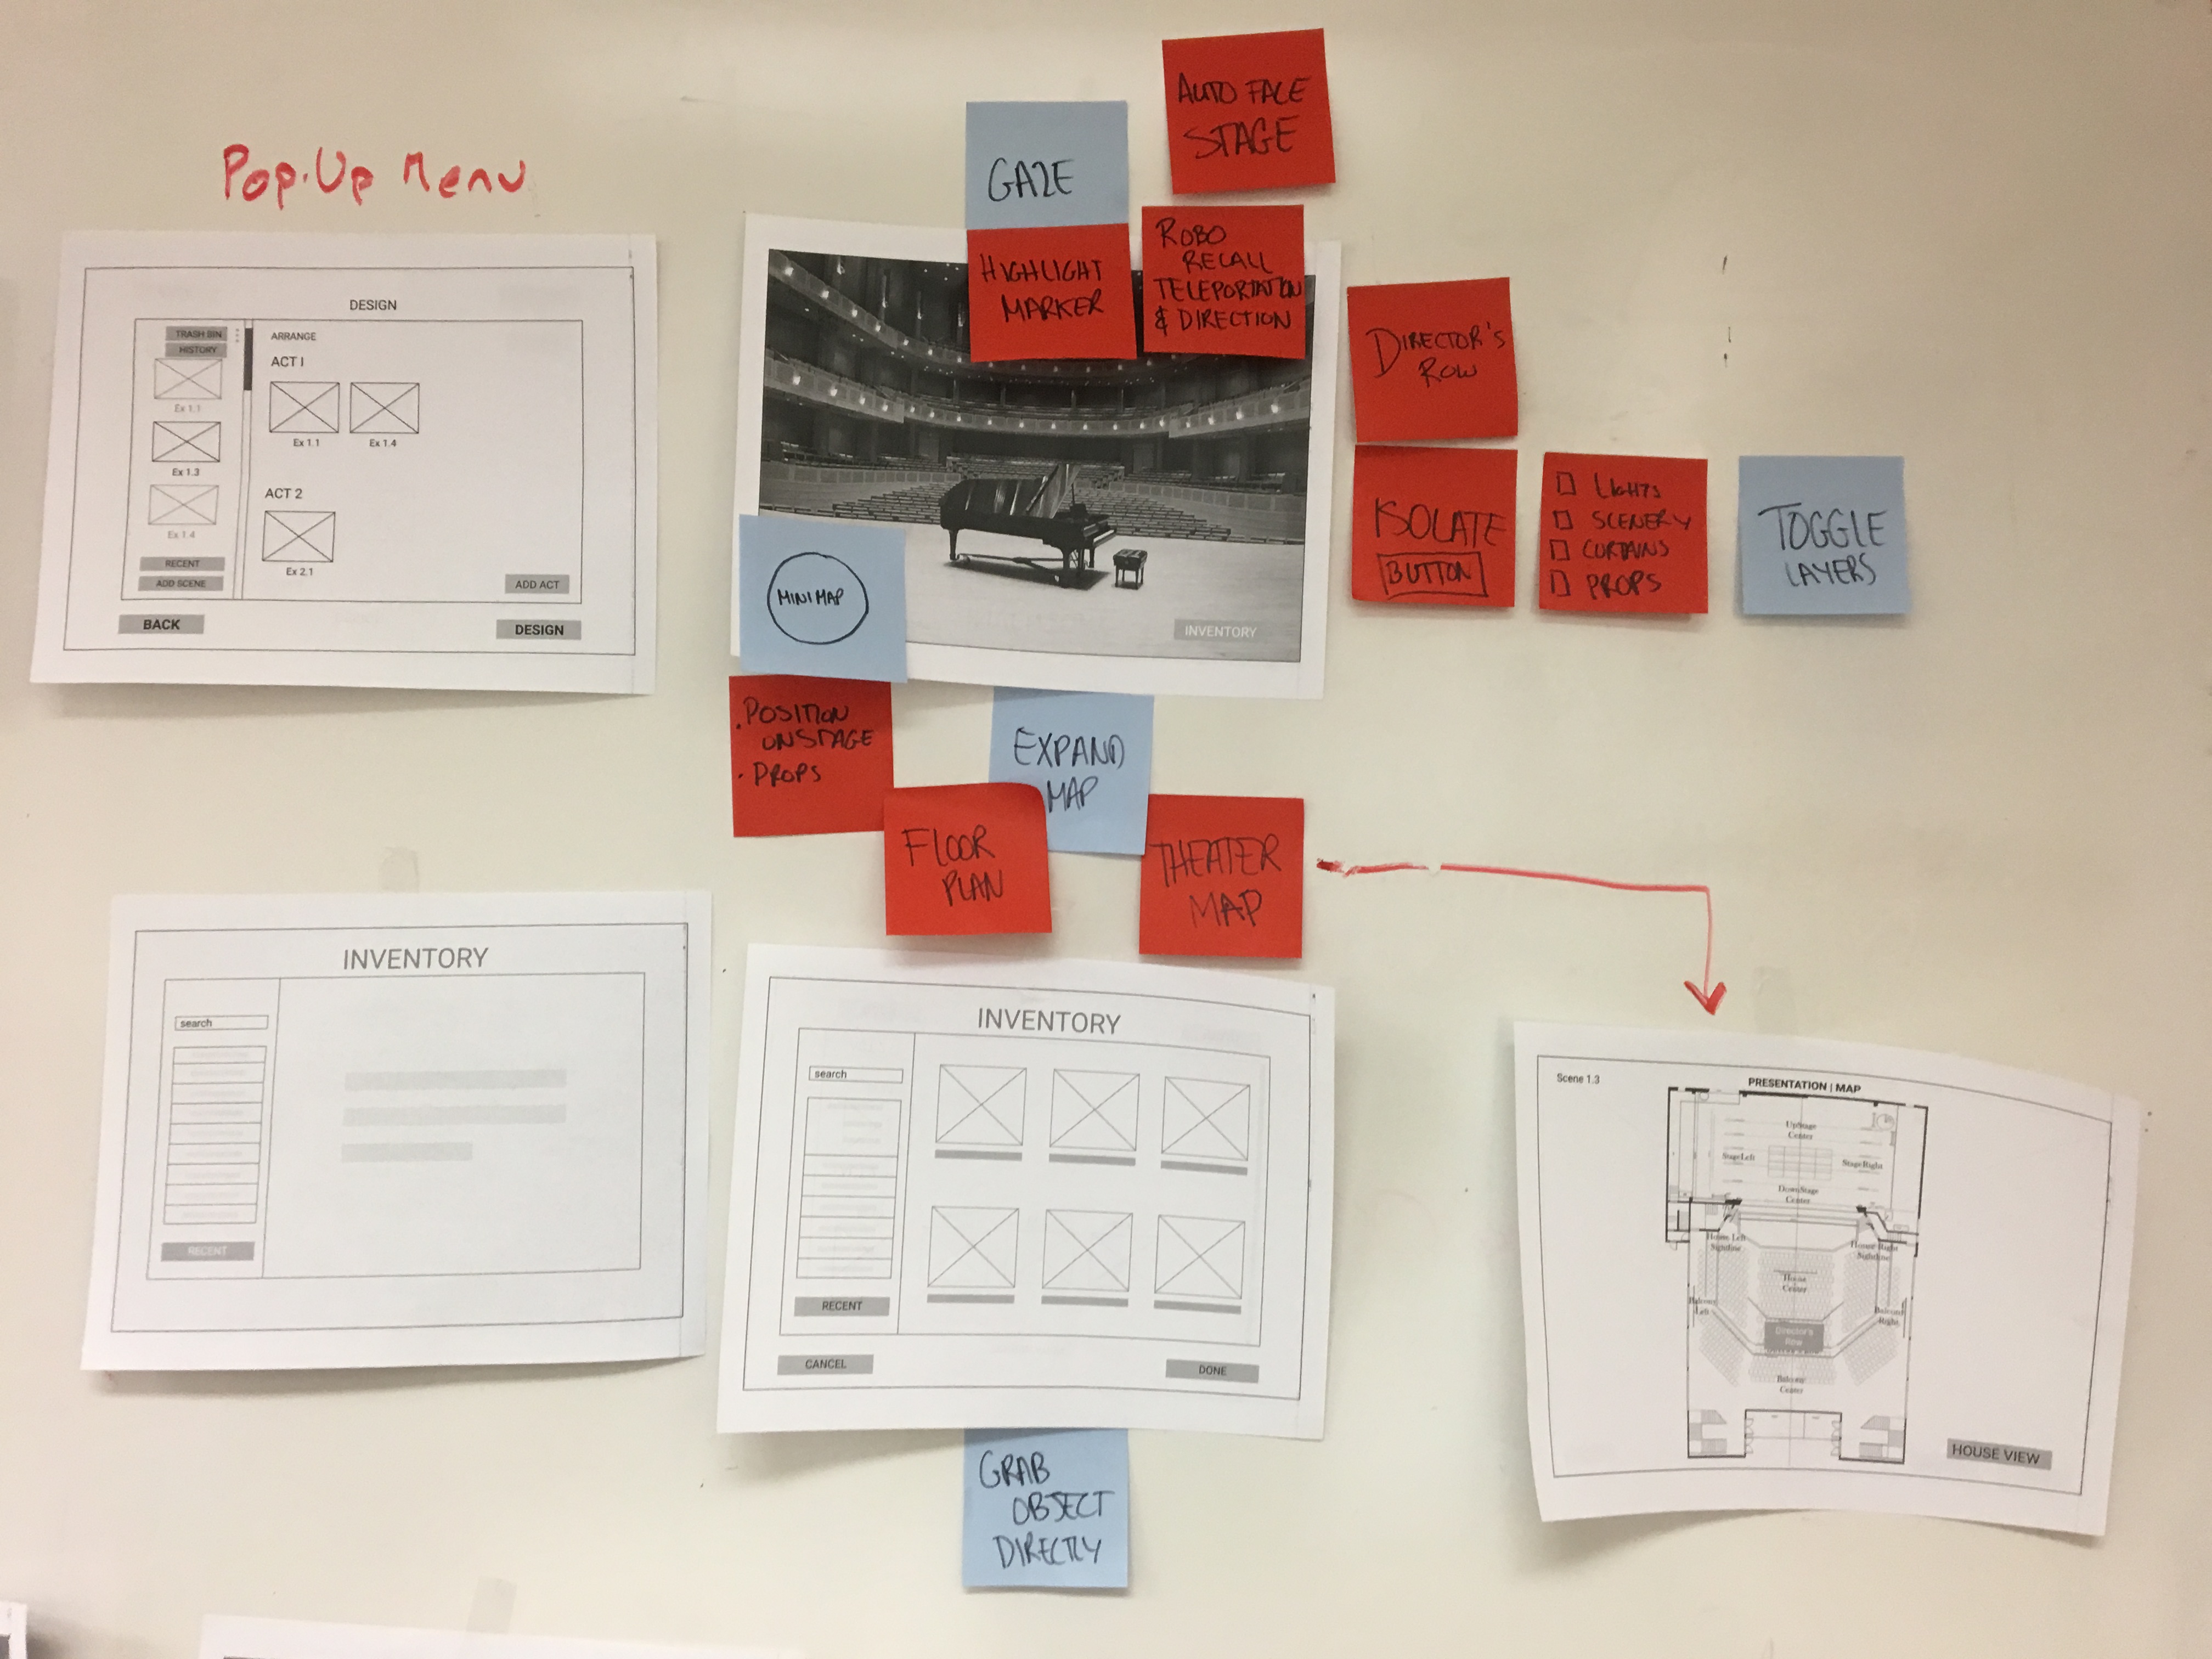 Pop-Up Menu
DESIGN
TRASH BIN
HISTORY
Ex 1.1
Ex 1.3
Ex 1.4
RECENT
ADD SCENE
ARRANGE
ACT I
Ex 1.1
Ex 1.4
ACT 2
Ex 2.1
ADD ACT
BACK
DESIGN
GAZE
HIGHLIGHT
MARKER
AUTO FACE
STAGE
ROBO
RECALL
TELEPORTATION
& DIRECTION
DIRECTOR'S
ROW
ISOLATE
BUTTON
LIGHTS
SCENERY
CURTAINS
PROPS
TOGGLE
LAYERS
MINIMAP
INVENTORY
• POSITION
ONSTAGE
• PROPS
EXPAND
MAP
FLOOR
PLAN
THEATER
MAP
INVENTORY
search
RECENT
INVENTORY
search
RECENT
CANCEL
DONE
GRAB
OBJECT
DIRECTLY
Scene 1.3
PRESENTATION | MAP
UpStage
Center
StageLeft
StageRight
DownStage
Center
House Left
Sightline
House Right
Sightline
House
Center
Balcony
Left
Balcony
Right
Director's
Row
Balcony
Center
HOUSE VIEW